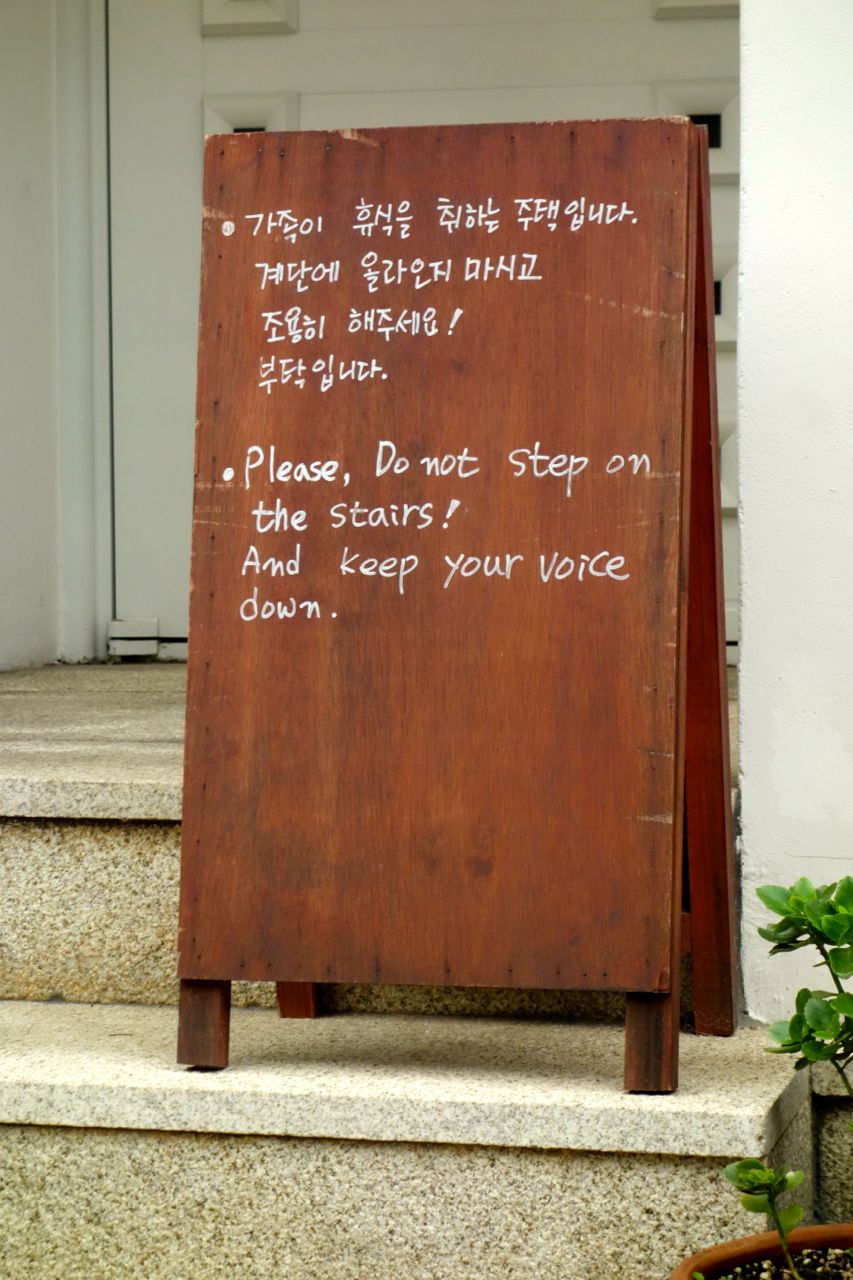 • 가족이 휴식을 취하는 주택입니다.
계단에 올라오지 마시고
조용히 해주세요!
부탁입니다.
• Please, Do not step on
the stairs!
And keep your voice
down.